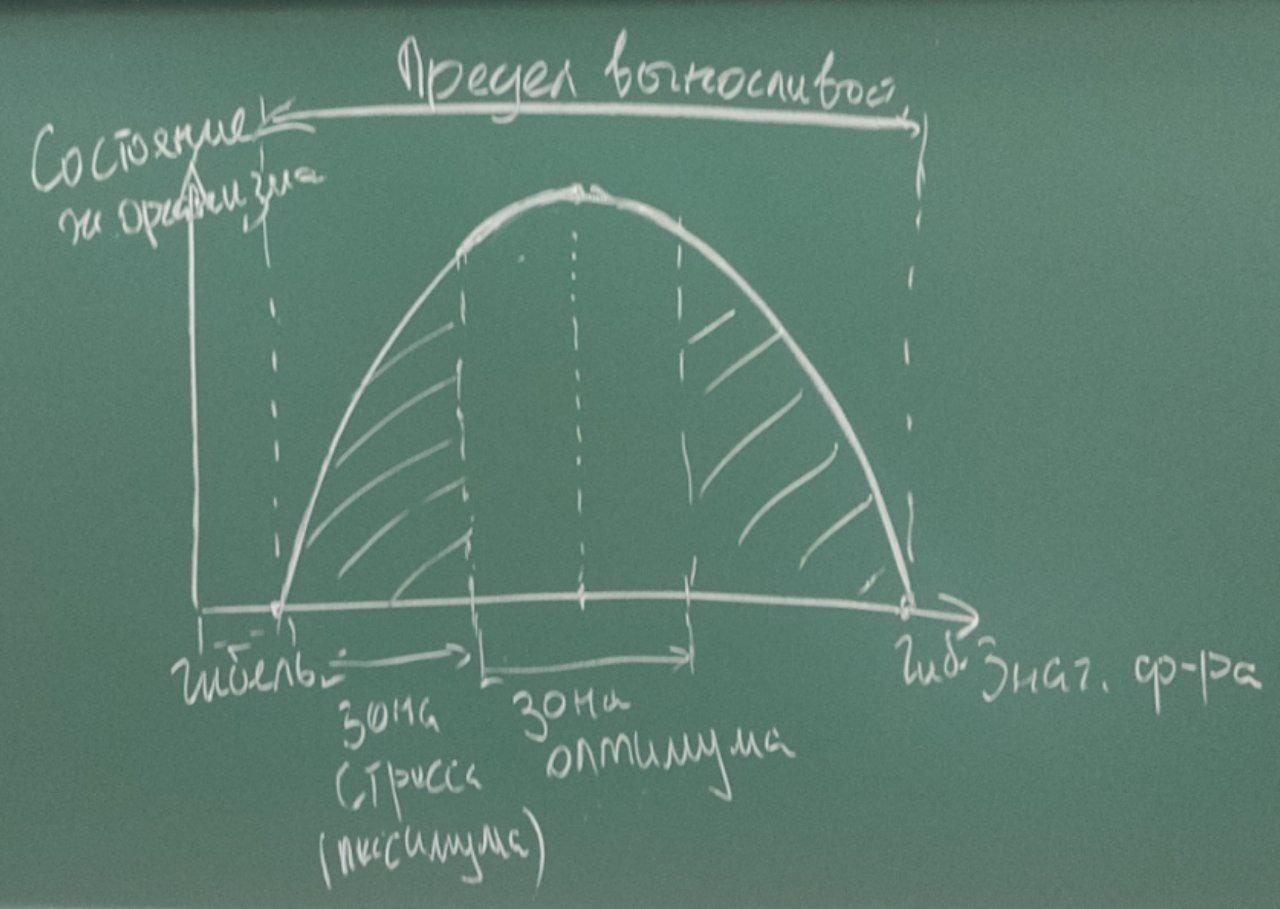 Предел выносливос.
Состояние
ж. организма
гибель
зона
стресса
(пессимума)
зона
оптимума
гиб.
Знач. ф-ра